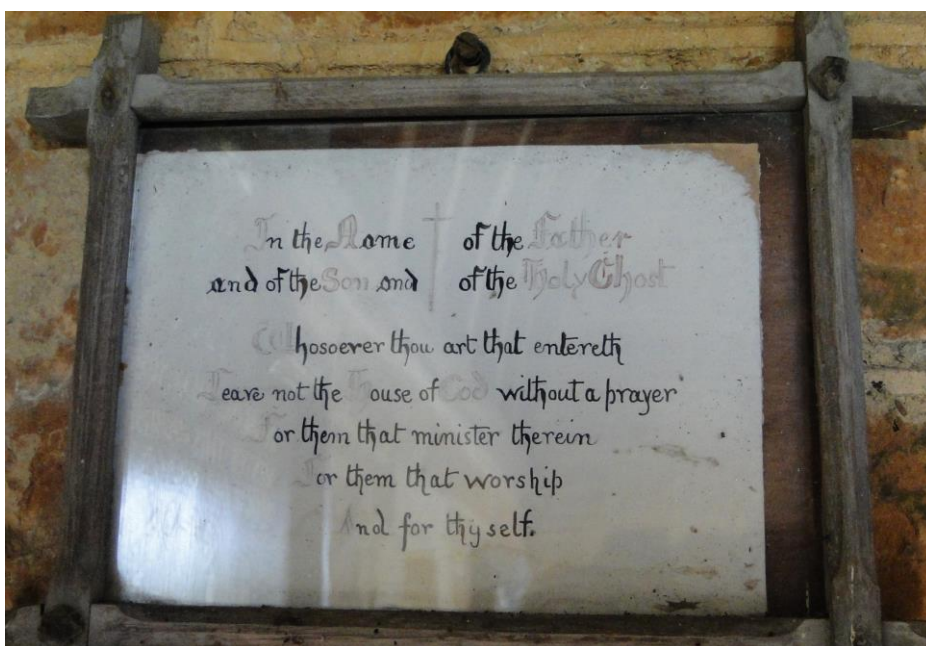 In the Name of the Father
and of the Son and of the Holy Ghost
Whosoever thou art that entereth
Leave not the House of God without a prayer
For them that minister therein
For them that worship
And for thyself.